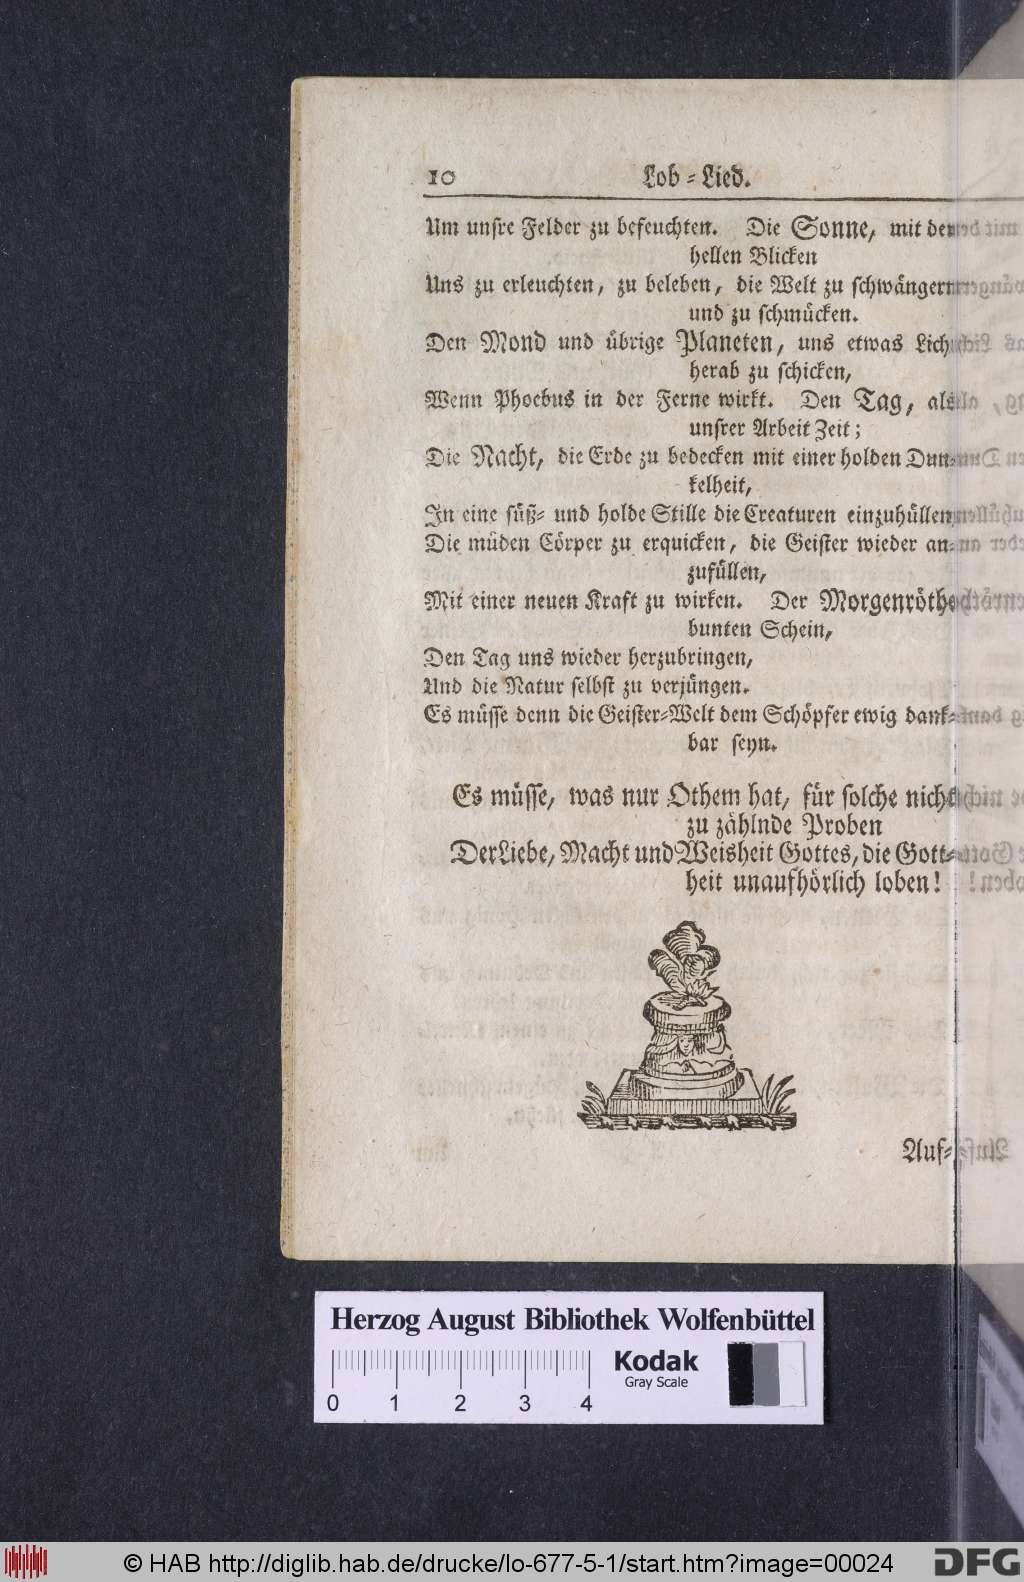 10 Lob-Lied.
Um unsre Felder zu befeuchten. Die Sonne, mit den
hellen Blicken
Uns zu erleuchten, zu beleben, die Welt zu schwängern
und zu schmücken.
Den Mond und übrige Planeten, uns etwas Licht
herab zu schicken,
Wenn Phoebus in der Ferne wirkt. Den Tag, als
unsrer Arbeit Zeit;
Die Nacht, die Erde zu bedecken mit einer holden Dun-
kelheit,
In eine süß- und holde Stille die Creaturen einzuhüllen,
Die müden Cörper zu erquicken, die Geister wieder an-
zufüllen,
Mit einer neuen Kraft zu wirken. Der Morgenröthe
bunten Schein,
Den Tag uns wieder herzubringen,
Und die Natur selbst zu verjüngen.
Es müsse denn die Geister-Welt dem Schöpfer ewig dank-
bar seyn.
Es müsse, was nur Othem hat, für solche nicht
zu zählnde Proben
Der Liebe, Macht und Weisheit Gottes, die Gott-
heit unaufhörlich loben!
Auf-
Herzog August Bibliothek Wolfenbüttel
0 1 2 3 4
Kodak
Gray Scale
© HAB http://diglib.hab.de/drucke/lo-677-5-1/start.htm?image=00024
DFG